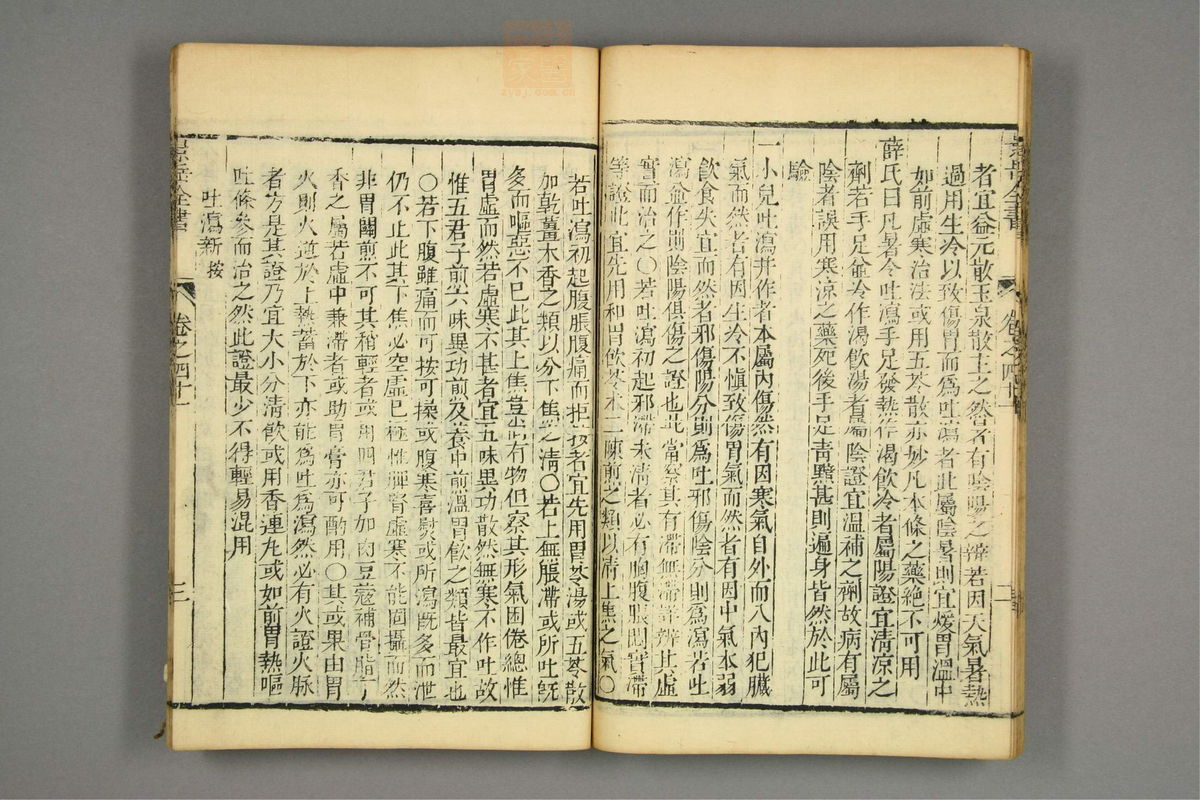 者宜益元散玉泉散主之然者有陰陽之辨若因天氣暑熱
過用生冷以致傷胃而爲吐瀉者此屬陰暑則宜煖胃溫中
如前虛寒治法或用五苓散亦妙凡本條之藥絕不可用
薛氏曰凡暑令吐瀉手足發熱作渴飲冷者屬陽證宜清凉之
劑若手足並冷作渴飲湯者屬陰證宜溫補之劑故病有屬
陰者誤用寒涼之藥死後手足青黯甚則遍身皆然於此可
驗
一小兒吐瀉并作者本屬內傷然有因寒氣自外而入內犯臟
氣而然者有因生冷不慎致傷胃氣而然者有因中氣本弱
飲食失宜而然者邪傷陽分則爲吐邪傷陰分則爲瀉若吐
瀉並作則陰陽俱傷之證也此當察其有滯無滯詳辨其虛
實而治之○若吐瀉初起邪滯未清者必有胸腹脹悶實滯
等證此宜先用和胃飲苓术二陳煎之類以清上焦之氣○
若吐瀉初起腹脹腹痛而拒按者宜先用胃苓湯或五苓散
加乾薑木香之類以分下焦之清○若上無脹滯或所吐既
多而嘔惡不已此其上焦豈尚有物但察其形氣困倦總惟
胃虛而然若虛寒不甚者宜五味異功散然無寒不作吐故
惟五君子煎六味異功煎及養中煎溫胃飲之類皆最宜也
○若下腹雖痛而可按可揉或腹寒喜熨或所瀉既多而泄
仍不止此其下焦必空虛已極惟脾腎虛寒不能固攝而然
非胃關煎不可其稍輕者或用四君子加肉豆蔻補骨脂丁
香之屬若虛中兼滯者或助胃膏亦可酌用○其或果由胃
火則火逆於上熱蓄於下亦能爲吐爲瀉然必有火證火脈
者方是其證乃宜大小分清飲或用香連丸或如前胃熱嘔
吐條參而治之然此證最少不得輕易混用
吐瀉新按
景岳全書
卷之四十一
二
景岳全書
卷之四十一
三
zysj.com.cn